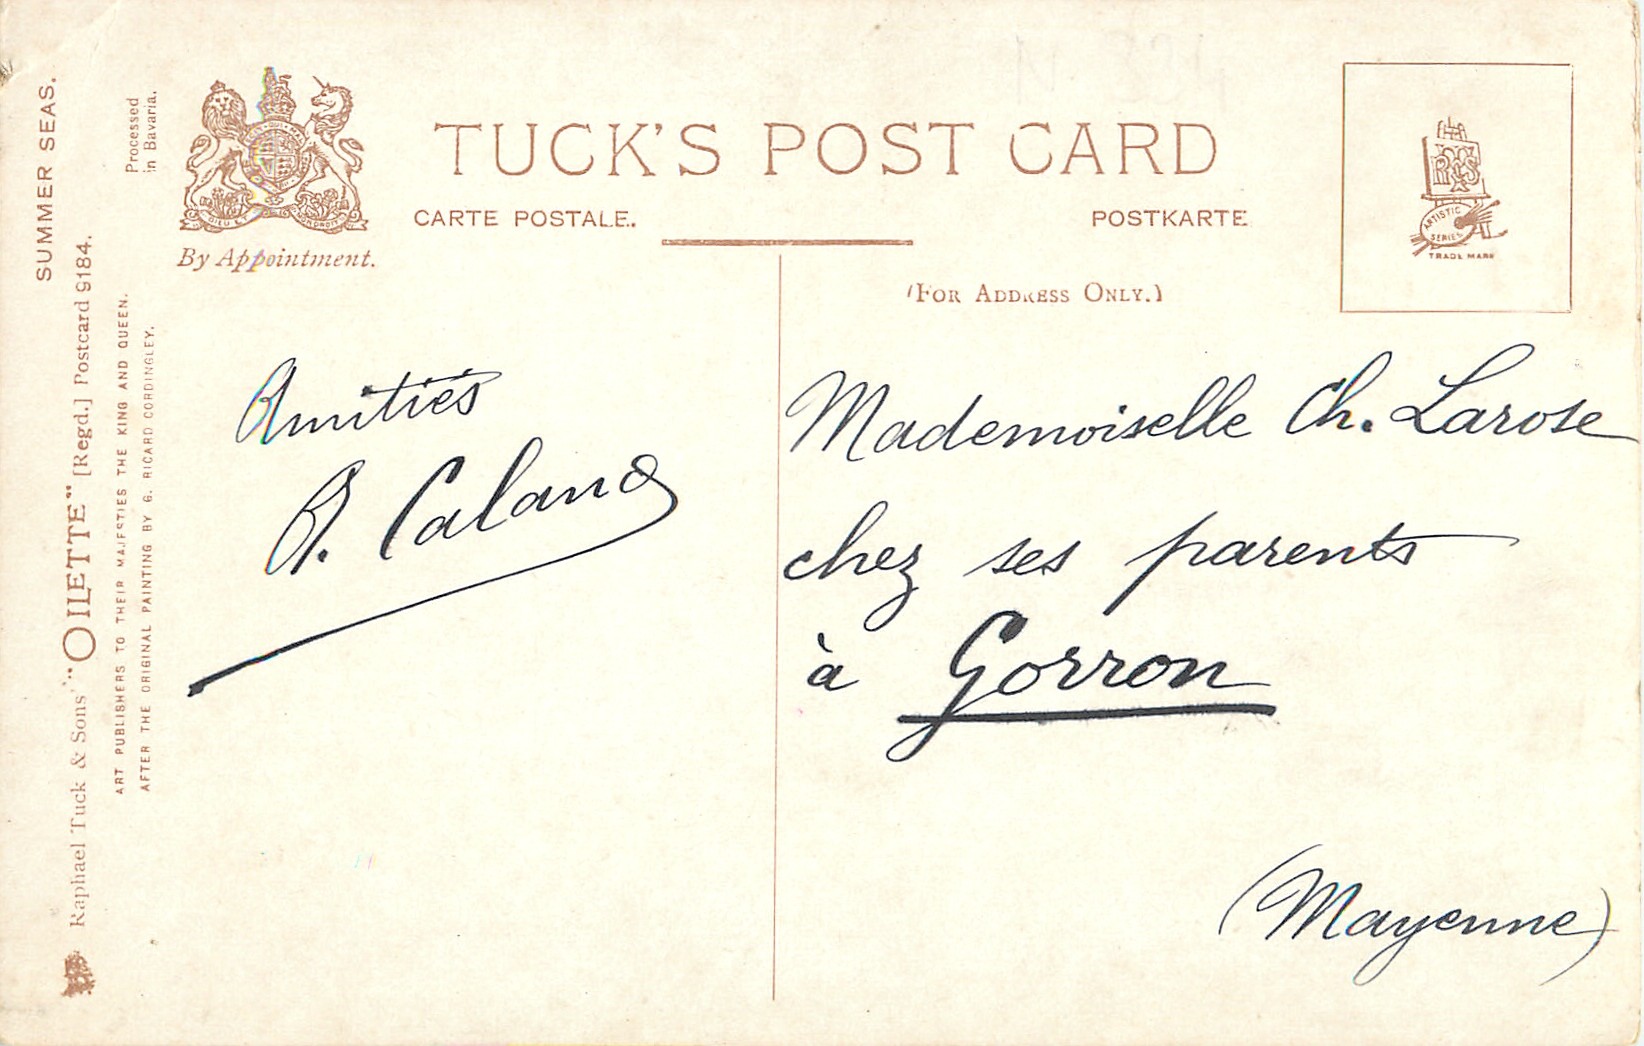 TUCK'S POST CARD
CARTE POSTALE.
POSTKARTE
By Appointment.
(FOR ADDRESS ONLY.)
ARTISTIC
SERIES
TRADE MARK
SUMMER SEAS.
Processed
in Bavaria.
Raphael Tuck & Sons' "OILETTE" [Regd.] Postcard 9184.
ART PUBLISHERS TO THEIR MAJESTIES THE KING AND QUEEN.
AFTER THE ORIGINAL PAINTING BY G. RICARD CORDINGLEY.
Amitiés
Mademoiselle Ch. Larose
chez ses parents
à Gorron
(Mayenne)